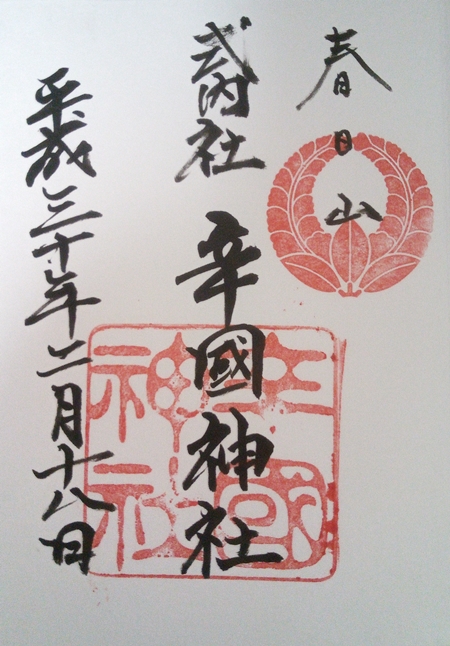 春日山
式内社
辛國神社
平成三十年二月十八日
辛國
神社